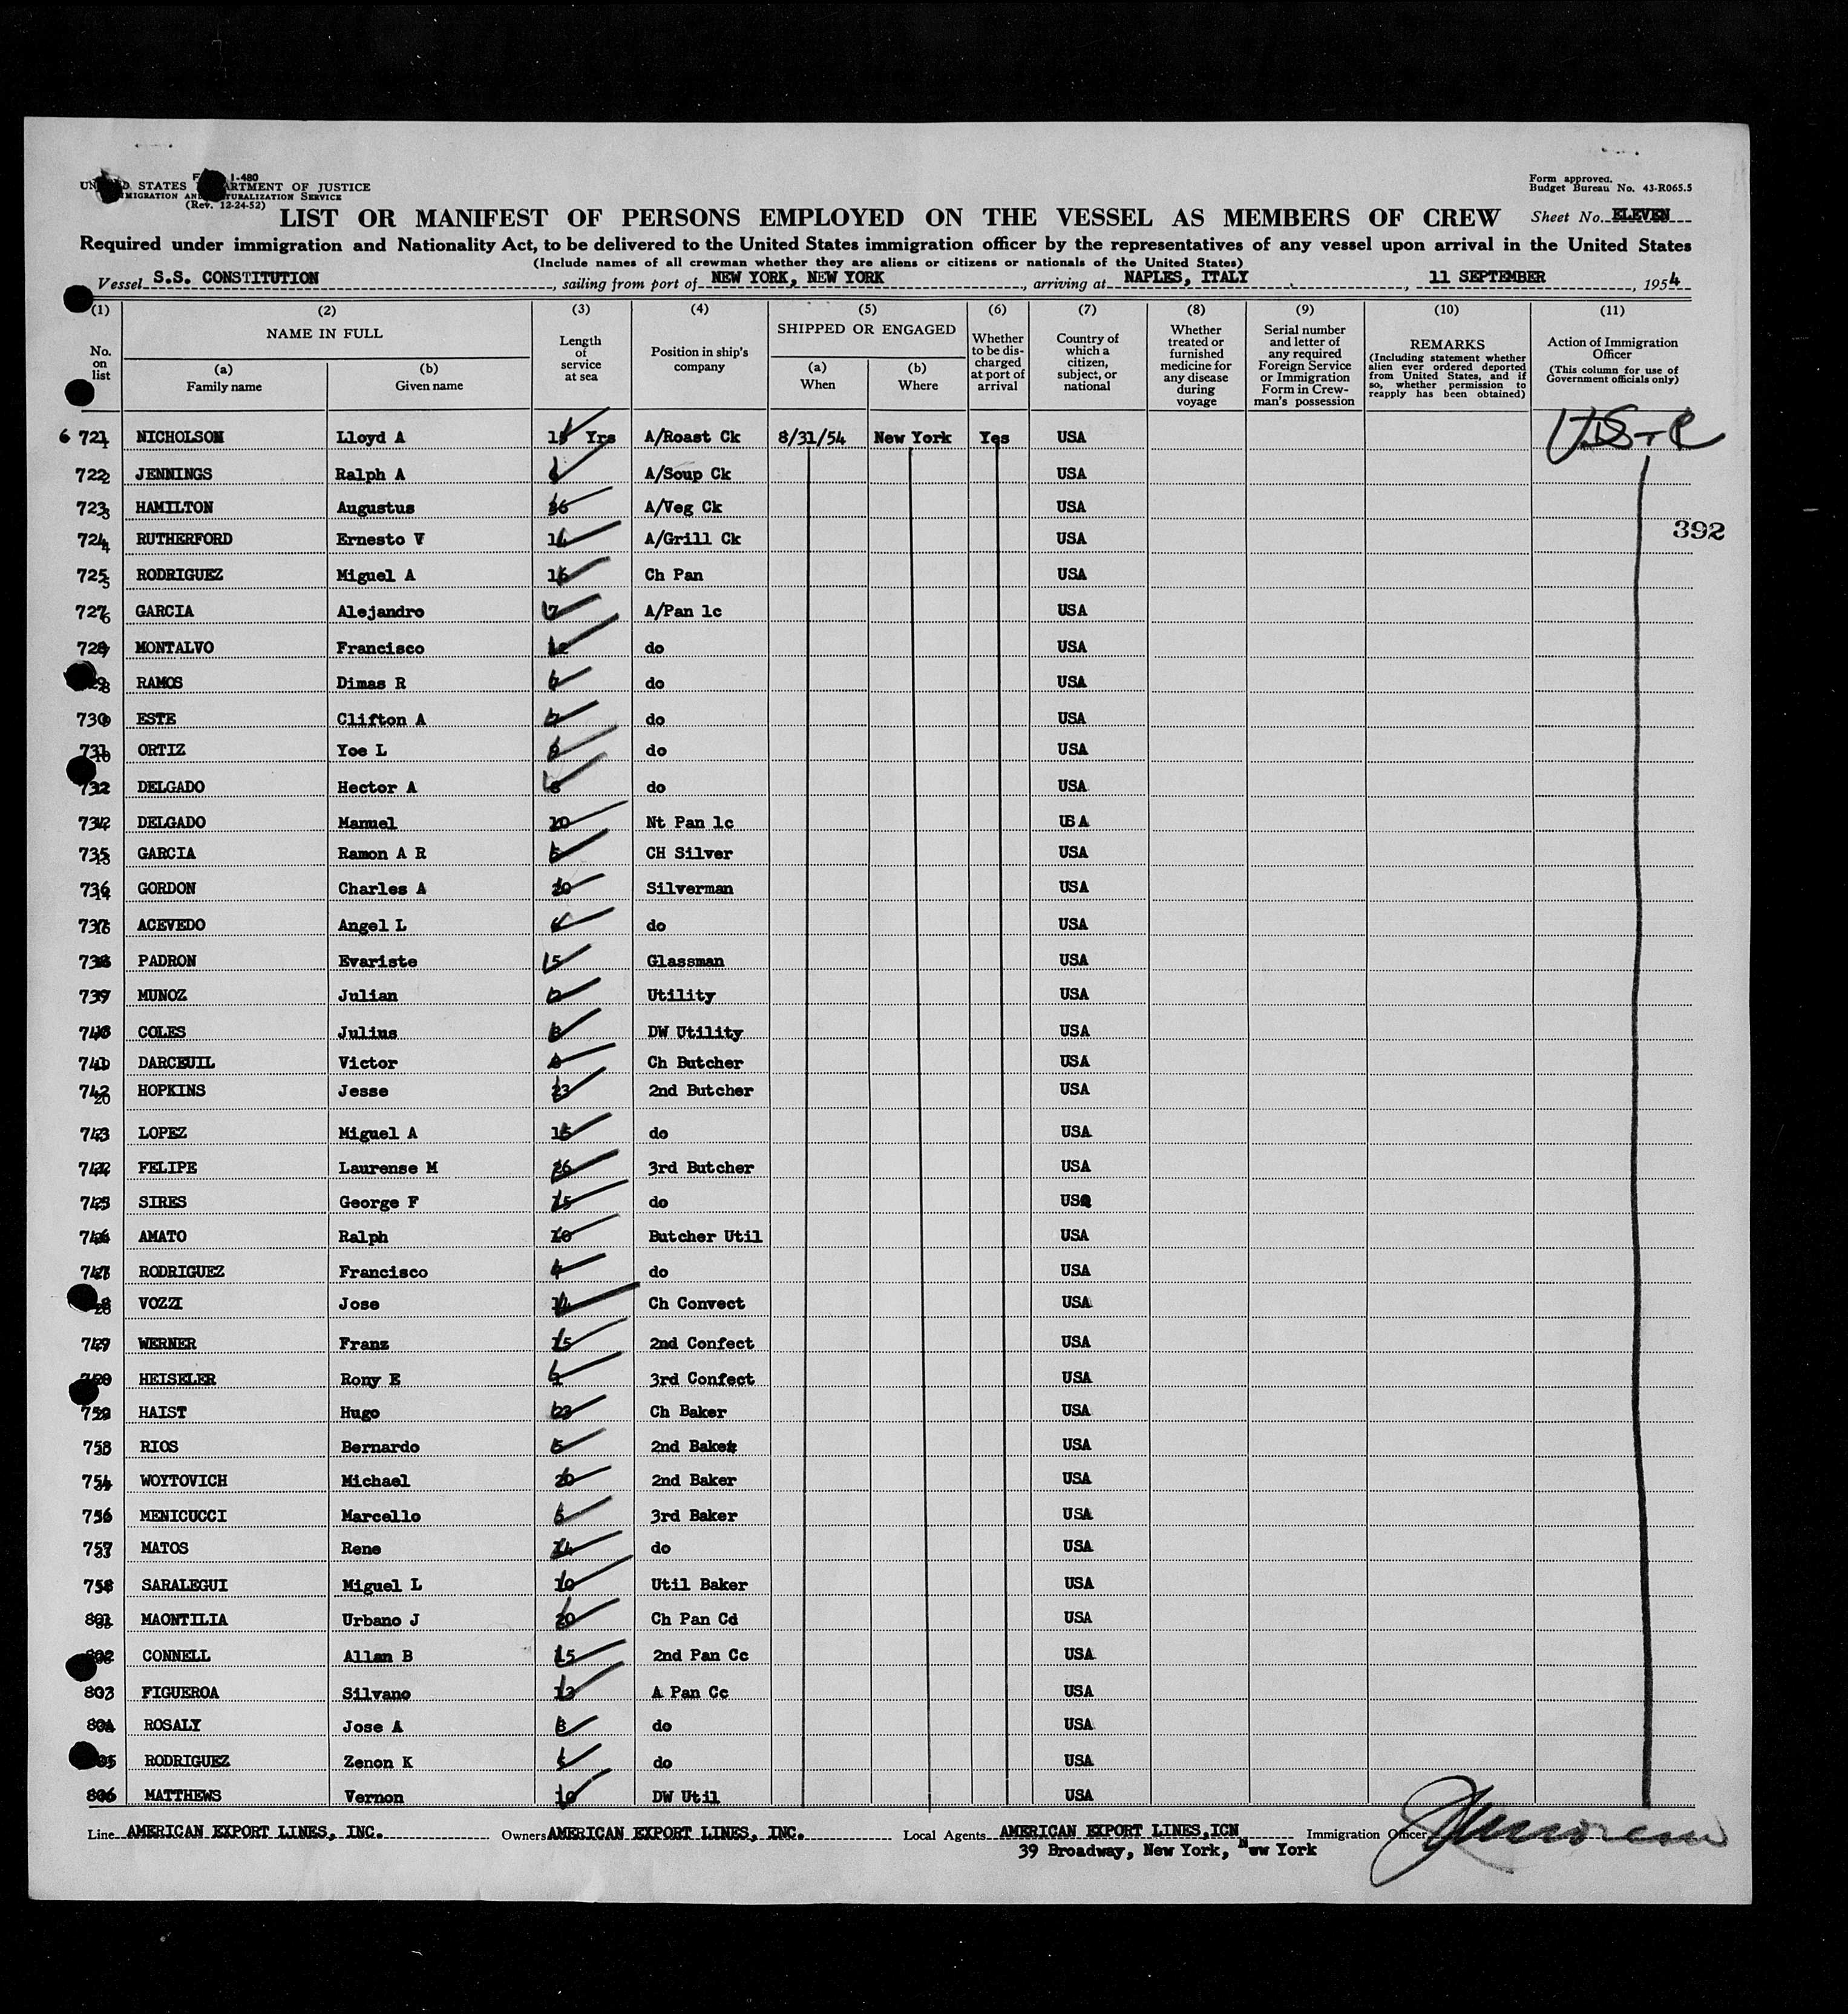 1-480
UNITED STATES DEPARTMENT OF JUSTICE
IMMIGRATION AND NATURALIZATION SERVICE
(Rev. 12-24-52)
Form approved.
Budget Bureau No. 43-R065.5
LIST OR MANIFEST OF PERSONS EMPLOYED ON THE VESSEL AS MEMBERS OF CREW Sheet No. ELEVEN
Required under immigration and Nationality Act, to be delivered to the United States immigration officer by the representatives of any vessel upon arrival in the United States
(Include names of all crewman whether they are aliens or citizens or nationals of the United States)
Vessel S.S. CONSTITUTION, sailing from port of NEW YORK, NEW YORK, arriving at NAPLES, ITALY, 11 SEPTEMBER, 1954
(1) (2) (3) (4) (5) (6) (7) (8) (9) (10) (11)
No. on list
NAME IN FULL
(a) Family name
(b) Given name
Length of service at sea
Position in ship's company
SHIPPED OR ENGAGED
(a) When
(b) Where
Whether to be discharged at port of arrival
Country of which a citizen, subject, or national
Whether treated or furnished medicine for any disease during voyage
Serial number and letter of any required Foreign Service or Immigration Form in Crewman's possession
REMARKS
(Including statement whether alien ever ordered deported from United States, and if so, whether permission to reapply has been obtained)
Action of Immigration Officer
(This column for use of Government officials only)
6 721 NICHOLSON Lloyd A Yrs A/Roast Ck 8/31/54 New York Yes USA
722 JENNINGS Ralph A A/Soup Ck USA
723 HAMILTON Augustus 36 A/Veg Ck USA
392
724 RUTHERFORD Ernesto V 14 A/Grill Ck USA
725 RODRIGUEZ Miguel A 16 Ch Pan USA
727 GARCIA Alejandro 17 A/Pan lc USA
728 MONTALVO Francisco 12 do USA
RAMOS Dimas R do USA
730 ESTE Clifton A 7 do USA
731 ORTIZ Yoe L do USA
732 DELGADO Hector A do USA
734 DELGADO Manuel 10 Nt Pan lc USA
735 GARCIA Ramon A R 5 CH Silver USA
736 GORDON Charles A 20 Silverman USA
737 ACEVEDO Angel L do USA
738 PADRON Evariste 15 Glassman USA
739 MUNOZ Julian Utility USA
740 COLES Julius 8 DW Utility USA
741 DARCEUIL Victor Ch Butcher USA
742 HOPKINS Jesse 23 2nd Butcher USA
743 LOPEZ Miguel A 15 do USA
744 FELIPE Laurense M 26 3rd Butcher USA
745 SIRES George F 15 do USA
746 AMATO Ralph 10 Butcher Util USA
747 RODRIGUEZ Francisco 4 do USA
VOZZI Jose 14 Ch Convect USA
749 WERNER Franz 15 2nd Confect USA
HEISELER Rony E 3rd Confect USA
HAIST Hugo 23 Ch Baker USA
753 RIOS Bernardo 5 2nd Baker USA
754 WOYTOVICH Michael 20 2nd Baker USA
756 MENICUCCI Marcello 3rd Baker USA
757 MATOS Rene 14 do USA
758 SARALEGUI Miguel L 10 Util Baker USA
801 MAONTILIA Urbano J 20 Ch Pan Cd USA
802 CONNELL Allan B 15 2nd Pan Cc USA
803 FIGUEROA Silvano 13 A Pan Cc USA
804 ROSALY Jose A do USA
RODRIGUEZ Zenon K 5 do USA
806 MATTHEWS Vernon 10 DW Util USA
Line AMERICAN EXPORT LINES, INC. Owners AMERICAN EXPORT LINES, INC. Local Agents AMERICAN EXPORT LINES,ICN Immigration Officer
39 Broadway, New York, New York